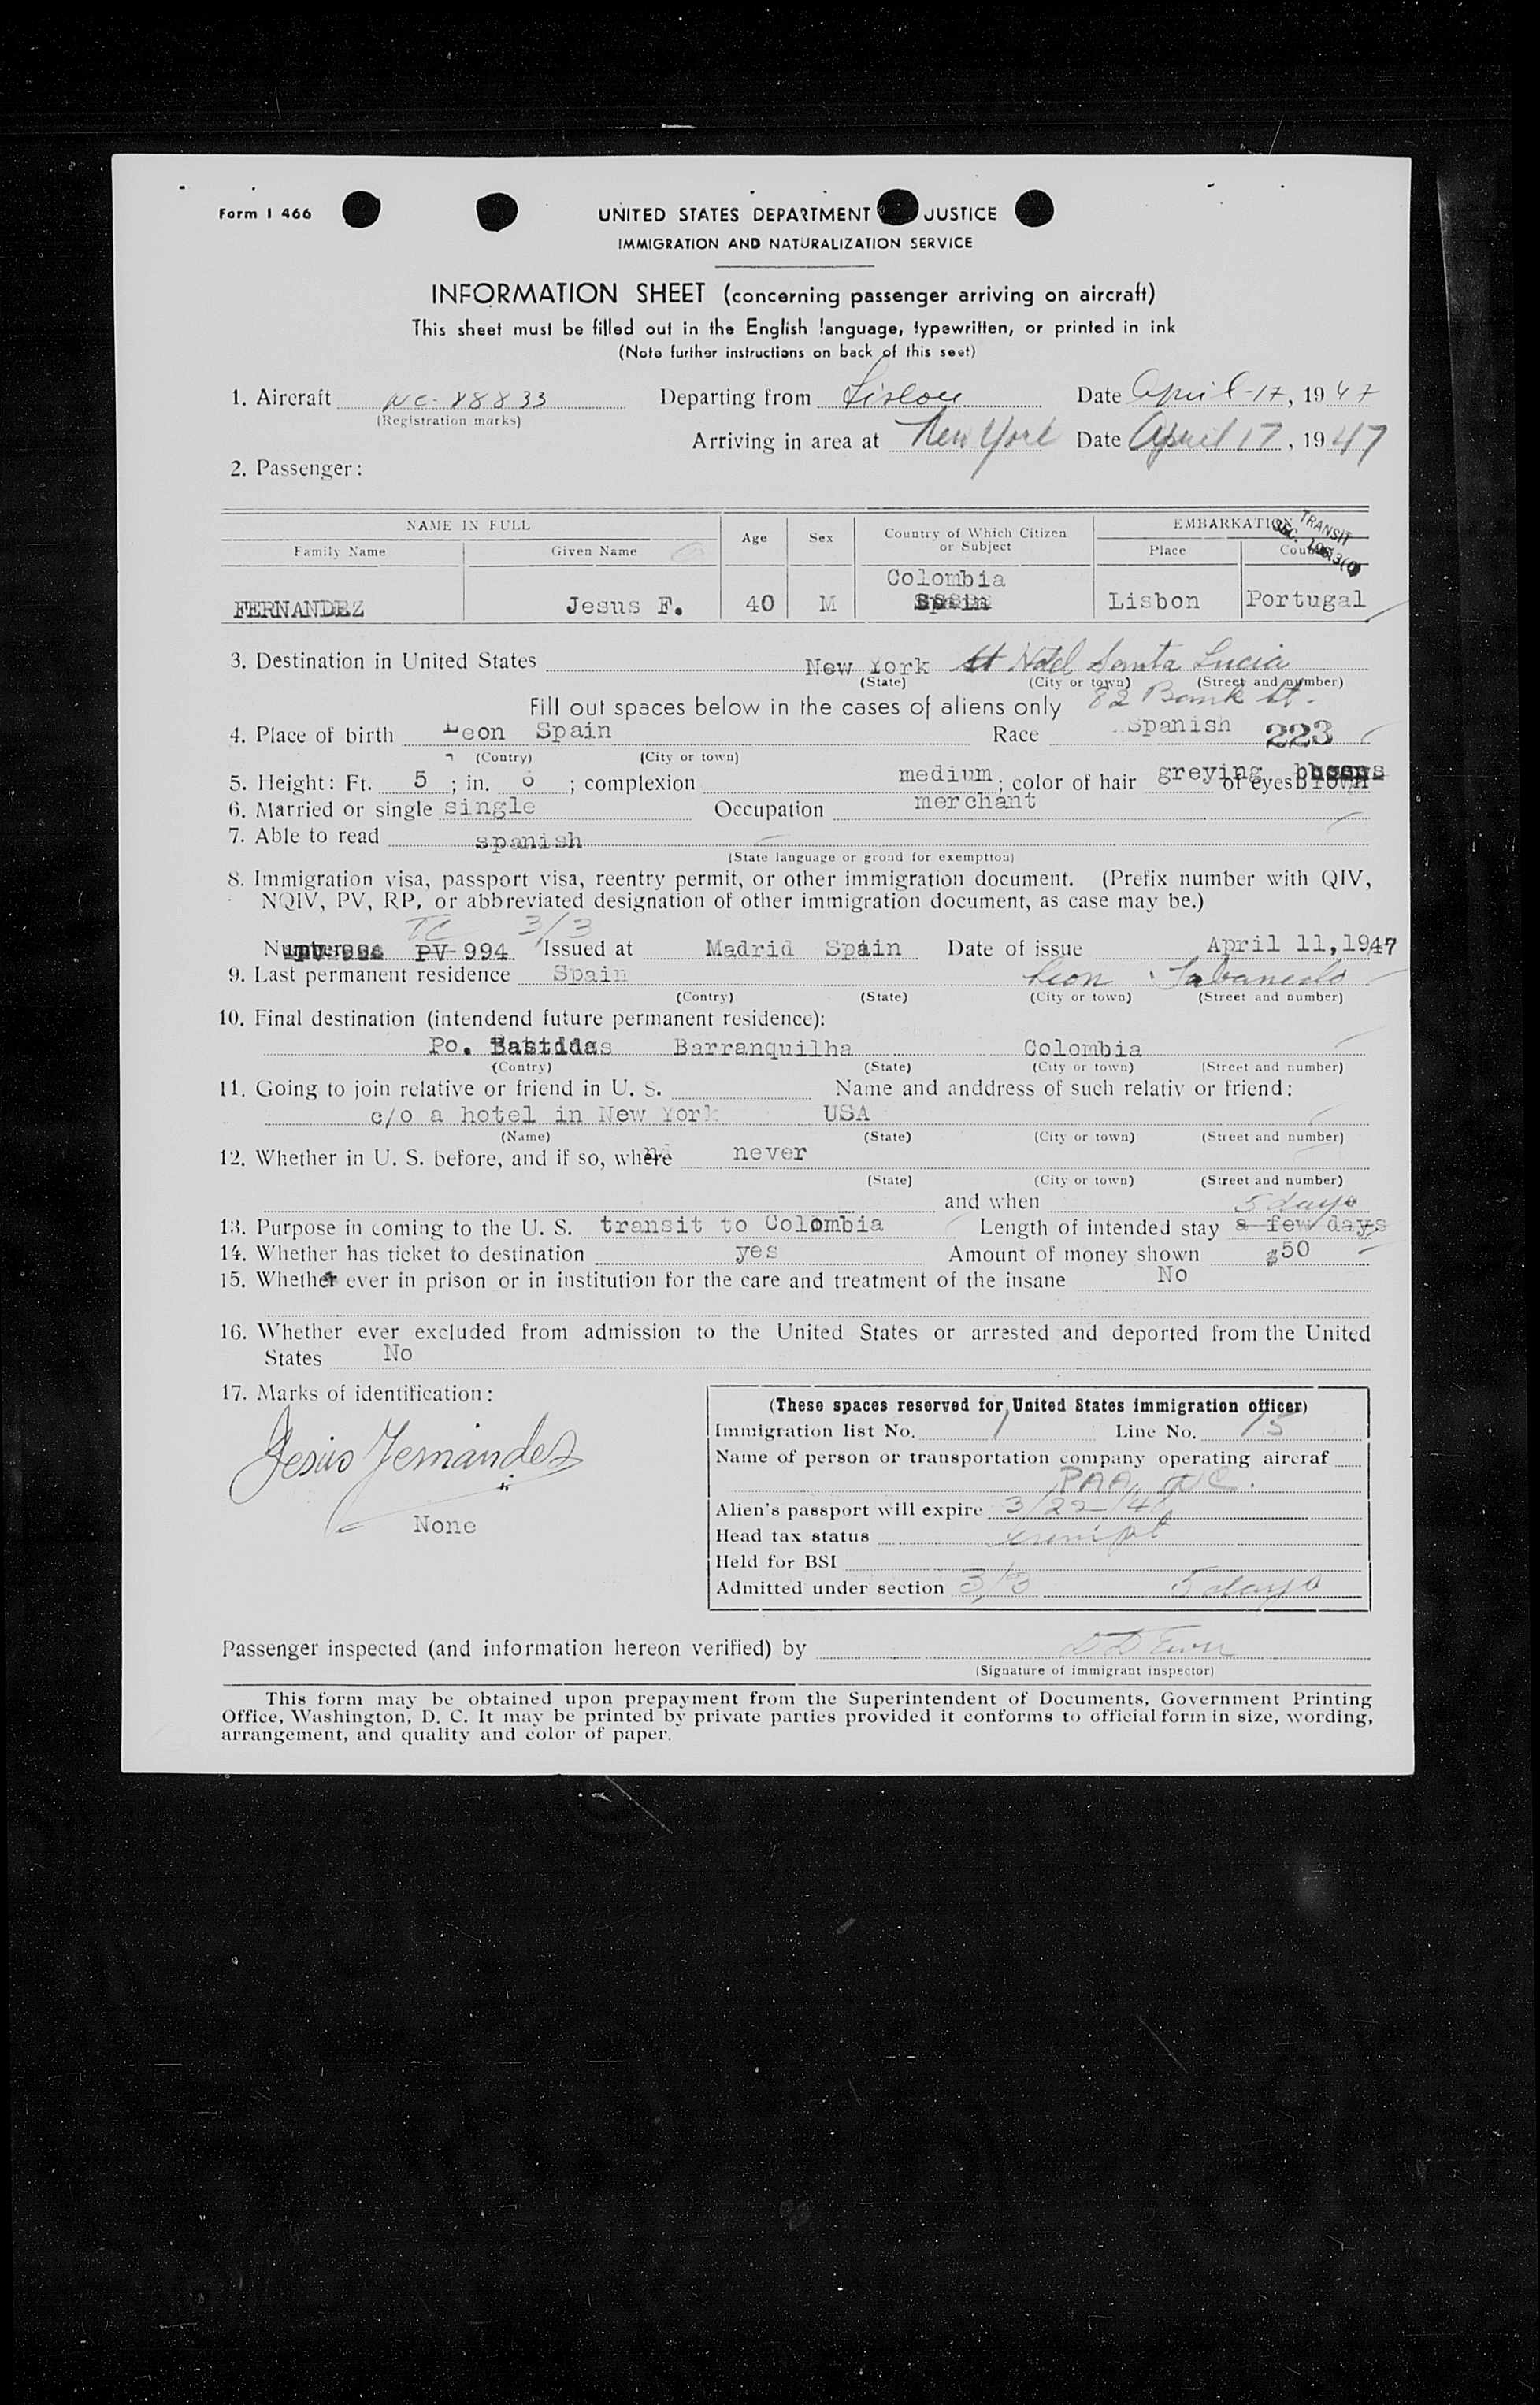 Form I 466
UNITED STATES DEPARTMENT JUSTICE
IMMIGRATION AND NATURALIZATION SERVICE
INFORMATION SHEET (concerning passenger arriving on aircraft)
This sheet must be filled out in the English language, typewritten, or printed in ink
(Note further instructions on back of this seet)
1. Aircraft NC-88833 Departing from Lisbon Date April-17, 1947
(Registration marks)
Arriving in area at New York Date April 17, 1947
2. Passenger:
NAME IN FULL Age Sex Country of Which Citizen or Subject EMBARKATION TRANSIT
Family Name Given Name Place
FERNANDEZ Jesus F. 40 M Colombia Spain Lisbon Portugal
3. Destination in United States New York Hotel Santa Lucia
(State) (City or town) (Street and number)
Fill out spaces below in the cases of aliens only 82 Bank St.
4. Place of birth Leon Spain Race Spanish 223
(Contry) (City or town)
5. Height: Ft. 5; in. 6; complexion medium; color of hair greying of eyes brown
6. Married or single single Occupation merchant
7. Able to read spanish
(State language or groad for exemptton)
8. Immigration visa, passport visa, reentry permit, or other immigration document. (Prefix number with QIV,
NQIV, PV, RP, or abbreviated designation of other immigration document, as case may be.)
TC 3/3
Number PV 994 Issued at Madrid Spain Date of issue April 11, 1947
9. Last permanent residence Spain Leon
(Contry) (State) (City or town) (Street and number)
10. Final destination (intendend future permanent residence):
Po. Bastidas Barranquilha Colombia
(Contry) (State) (City or town) (Street and number)
11. Going to join relative or friend in U. S. Name and anddress of such relativ or friend:
c/o a hotel in New York USA
(Name) (State) (City or town) (Street and number)
12. Whether in U. S. before, and if so, where never
(State) (City or town) (Street and number)
and when
5 days
13. Purpose in coming to the U. S. transit to Colombia Length of intended stay a few days
14. Whether has ticket to destination yes Amount of money shown $50
15. Whether ever in prison or in institution for the care and treatment of the insane No
16. Whether ever excluded from admission to the United States or arrested and deported from the United
States No
17. Marks of identification:
Jesus Fernandez
None
(These spaces reserved for United States immigration officer)
Immigration list No. 1 Line No. 15
Name of person or transportation company operating aircraf
PAA INC.
Alien's passport will expire 3/22/48
Head tax status exempt
Held for BSI
Admitted under section 3/3 5 days
Passenger inspected (and information hereon verified) by
(Signature of immigrant inspector)
This form may be obtained upon prepayment from the Superintendent of Documents, Government Printing
Office, Washington, D. C. It may be printed by private parties provided it conforms to official form in size, wording,
arrangement, and quality and color of paper.